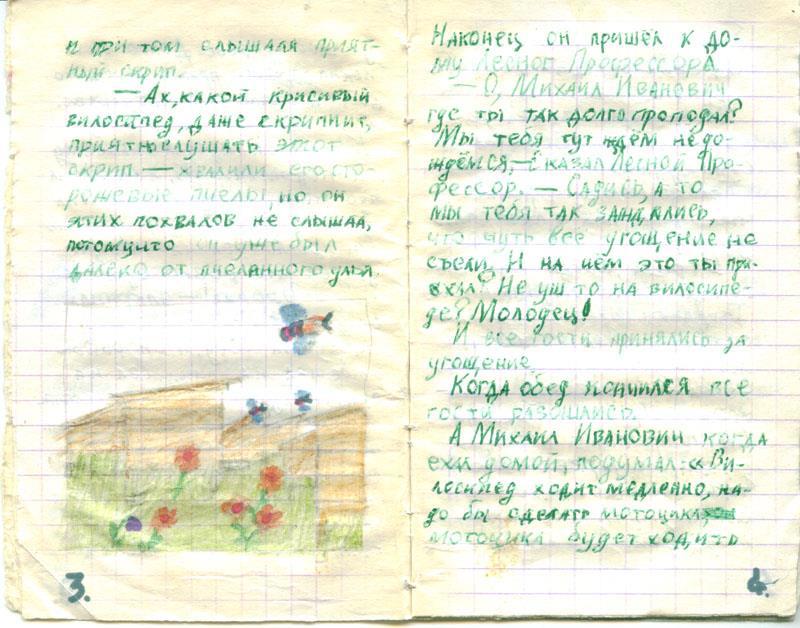 и при том слышался прият-
ный скрип.
— Ах, какой красивый
вилосипед, даже скрипит,
приятно слушать этот
скрип. — хвалили его сто-
рожевые пчелы, но он
этих похвалов не слышал,
потомучто он уже был
далеко от пчелиного улья.
3.
Наконец он пришёл к до-
му Лесного Профессора.
— О, Михаил Иванович
где ты так долго проподал?
Мы тебя тут ждём не до-
ждёмся, — сказал Лесной Про-
фессор. — Садись, а то
мы тебя так заждались,
что чуть всё угощение не
съели. И на чём это ты при-
ехал? Не уш то на вилосипе-
де? Молодец!
И все гости принялись за
угощение.
Когда обед кончился все
гости разошлись.
А Михаил Иванович когда
ехал домой, подумал: «Ви-
лосипед ходит медленно, на-
до бы сделать мотоцикл,
мотоцикл будет ходить
4.